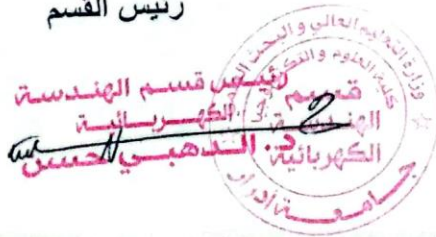 رئيس القسم
رئيس قسم الهندسة
الكهربائية
د. الذهبي لحسن
وزارة التعليم العالي و البحث
كلية العلوم و التكنولوجيا
قسم
الهندسة
الكهربائية
جامعة أدرار